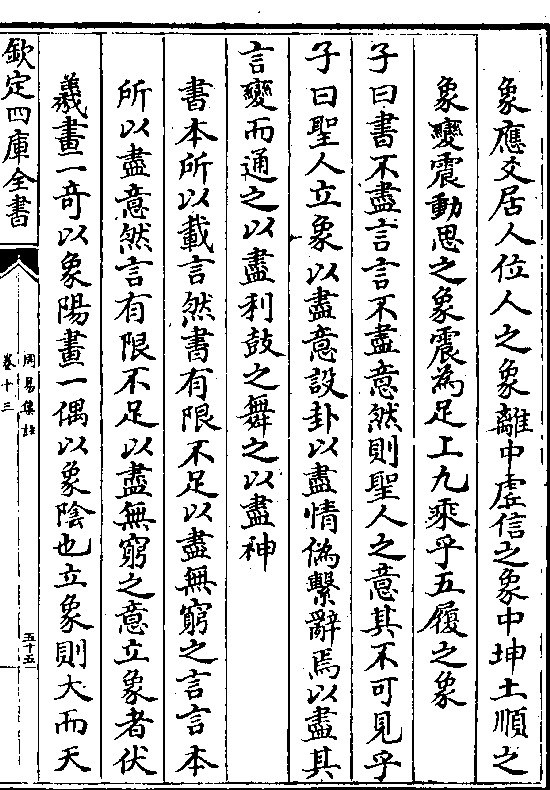 象應爻居人位人之象離中虛信之象中坤土順之
象變震動思之象震為足上九乘乎五履之象
子曰書不盡言言不盡意然則聖人之意其不可見乎
子曰聖人立象以盡意設卦以盡情偽繫辭焉以盡其
言變而通之以盡利鼓之舞之以盡神
書本所以載言然書有限不足以盡無窮之言言本
所以盡意然言有限不足以盡無窮之意立象者伏
羲畫一奇以象陽畫一偶以象陰也立象則大而天
欽定四庫全書
周易集註
卷十三
五十五